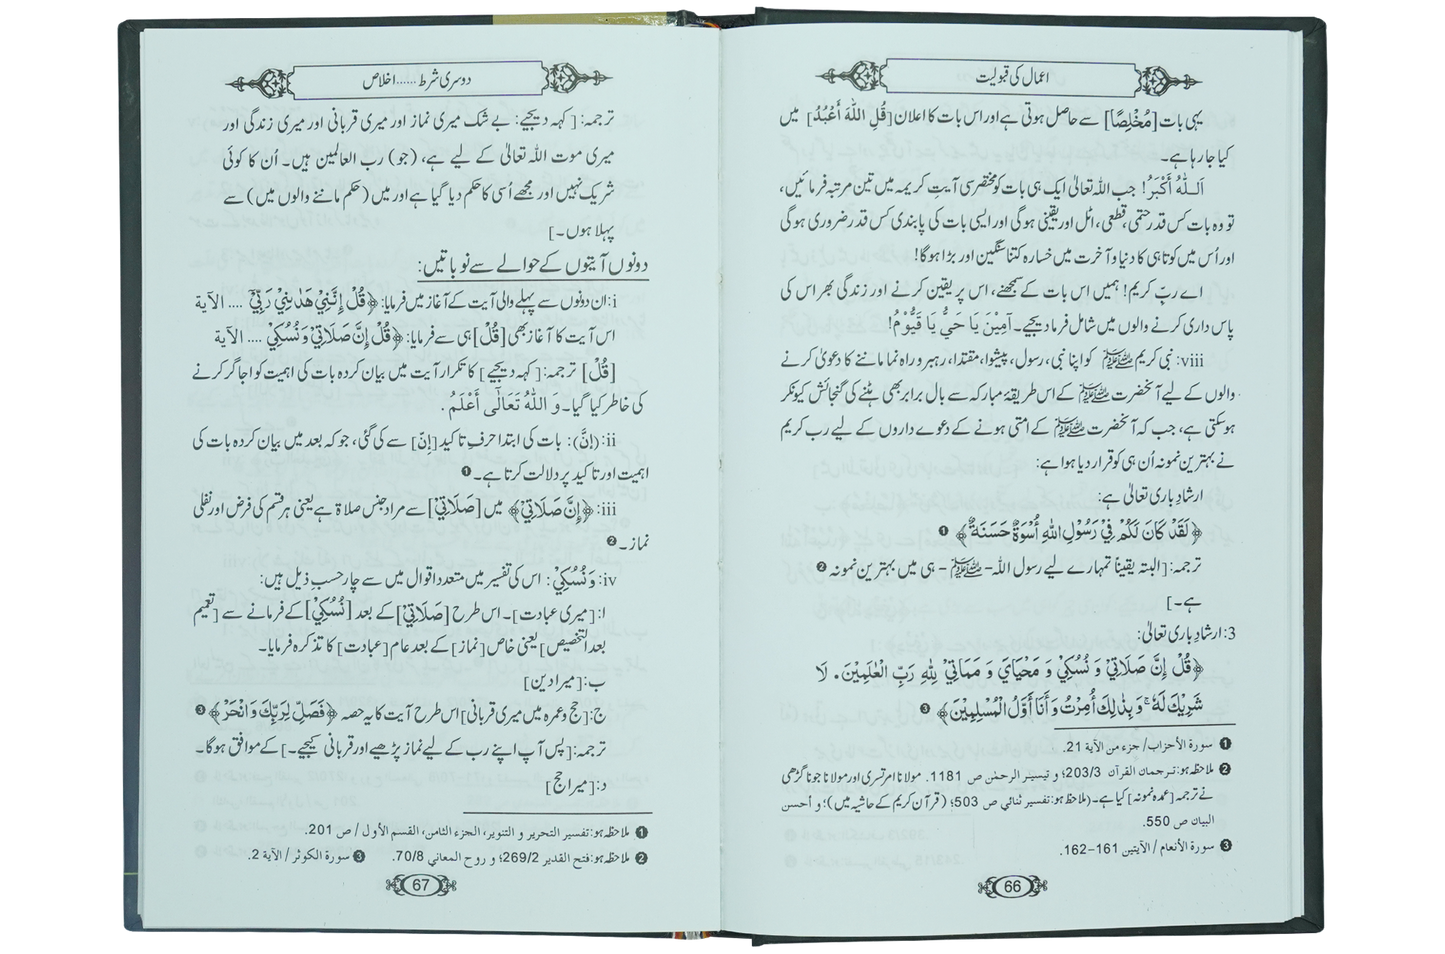 اعمال کی قبولیت
یہی بات [مُخْلِصًا] سے حاصل ہوتی ہے اور اس بات کا اعلان [قُلِ اللّٰهَ أَعْبُدُ] میں
کیا جا رہا ہے۔
اَللّٰهُ أَكْبَرُ! جب اللہ تعالیٰ ایک ہی بات کو مختصر سی آیتِ کریمہ میں تین مرتبہ فرمائیں،
تو وہ بات کس قدر حتمی، قطعی، اٹل اور یقینی ہوگی اور ایسی بات کی پابندی کس قدر ضروری ہوگی
اور اُس میں کوتاہی کا دنیا و آخرت میں خسارہ کتنا سنگین اور بڑا ہوگا!
اے ربِّ کریم! ہمیں اس بات کے سمجھنے، اس پر یقین کرنے اور زندگی بھر اس کی
پاس داری کرنے والوں میں شامل فرما دیجیے۔ آمِیْنَ یَا حَيُّ یَا قَیُّوْمُ!
viii: نبی کریم ﷺ کو اپنا نبی، رسول، پیشوا، مقتدا، رہبر و راہ نما ماننے کا دعویٰ کرنے
والوں کے لیے آنحضرت ﷺ کے اس طریقۂ مبارکہ سے بال برابر بھی ہٹنے کی گنجائش کیونکر
ہوسکتی ہے، جب کہ آنحضرت ﷺ کے امتی ہونے کے دعوے داروں کے لیے ربِ کریم
نے بہترین نمونہ اُن ہی کو قرار دیا ہوا ہے:
ارشادِ باری تعالیٰ ہے:
﴿لَقَدْ كَانَ لَكُمْ فِيْ رَسُوْلِ اللّٰهِ أُسْوَةٌ حَسَنَةٌ﴾ ❶
ترجمہ: [البتہ یقیناً تمہارے لیے رسول اللہ- ﷺ - ہی میں بہترین نمونہ ❷
ہے۔]
3: ارشادِ باری تعالیٰ:
﴿قُلْ إِنَّ صَلَاتِيْ وَ نُسُكِيْ وَ مَحْيَايَ وَ مَمَاتِيْ لِلّٰهِ رَبِّ الْعٰلَمِيْنَ. لَا
شَرِيْكَ لَهُ ۚ وَ بِذٰلِكَ أُمِرْتُ وَ أَنَا أَوَّلُ الْمُسْلِمِيْنَ﴾ ❸
❶ سورة الأحزاب/ جزء من الآية 21.
❷ ملاحظہ ہو: ترجمان القرآن 203/3 و تیسیر الرحمٰن ص 1181. مولانا امرتسری اور مولانا جونا گڑھی
نے ترجمہ [عمدہ نمونہ] کیا ہے۔ (ملاحظہ ہو: تفسیر ثنائی ص 503؛ (قرآن کریم کے حاشیہ میں)؛ و أحسن
البیان ص 550.
❸ سورة الأنعام/ الآیتین 161-162.
66
دوسری شرط ...... اخلاص
ترجمہ: [کہہ دیجیے: بے شک میری نماز اور میری قربانی اور میری زندگی اور
میری موت اللہ تعالیٰ کے لیے ہے، (جو) رب العالمین ہیں۔ اُن کا کوئی
شریک نہیں اور مجھے اُسی کا حکم دیا گیا ہے اور میں (حکم ماننے والوں میں) سے
پہلا ہوں۔]
دونوں آیتوں کے حوالے سے نو باتیں:
i: ان دونوں سے پہلے والی آیت کے آغاز میں فرمایا: ﴿قُلْ إِنَّنِيْ هَدٰىنِيْ رَبِّيْ .... الآية
اس آیت کا آغاز بھی [قُلْ] ہی سے فرمایا: ﴿قُلْ إِنَّ صَلَاتِيْ وَنُسُكِيْ .... الآية
[قُلْ] ترجمہ: [کہہ دیجیے] کا تکرار آیت میں بیان کردہ بات کی اہمیت کو اجاگر کرنے
کی خاطر کیا گیا۔ وَ اللّٰهُ تَعَالٰی أَعْلَمُ .
ii: (إِنَّ): بات کی ابتدا حرفِ تاکید [إِنّ] سے کی گئی، جو کہ بعد میں بیان کردہ بات کی
اہمیت اور تاکید پر دلالت کرتا ہے۔ ❶
iii: ﴿إِنَّ صَلَاتِيْ﴾ میں [صَلَاتِيْ] سے مراد جنس صلاۃ ہے یعنی ہر قسم کی فرض اور نفلی
نماز۔ ❷
iv: وَنُسُكِيْ: اس کی تفسیر میں متعدد اقوال میں سے چار حسبِ ذیل ہیں:
ا: [میری عبادت]۔ اس طرح [صَلَاتِيْ] کے بعد [نُسُكِيْ] کے فرمانے سے [تعمیم
بعد التخصیص] یعنی خاص [نماز] کے بعد عام [عبادت] کا تذکرہ فرمایا۔
ب: [میرا دین]
ج: [حج و عمرہ میں میری قربانی] اس طرح آیت کا یہ حصہ ﴿فَصَلِّ لِرَبِّكَ وَانْحَرْ﴾ ❸
ترجمہ: [پس آپ اپنے رب کے لیے نماز پڑھیے اور قربانی کیجیے۔] کے موافق ہوگا۔
د: [میرا حج]
❶ ملاحظہ ہو: تفسیر التحریر و التنویر، الجزء الثامن، القسم الأول / ص 201.
❷ ملاحظہ ہو: فتح القدیر 269/2؛ و روح المعاني 70/8. ❸ سورة الكوثر / الآية 2.
67